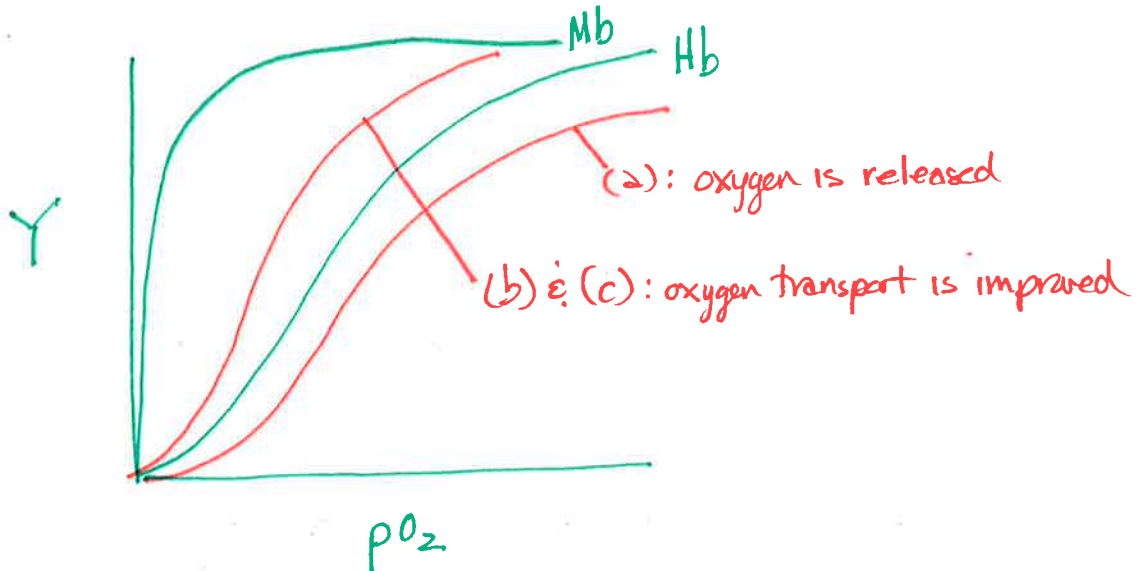 Mb
Hb
(a): oxygen is released
Y
(b) & (c): oxygen transport is improved
pO₂